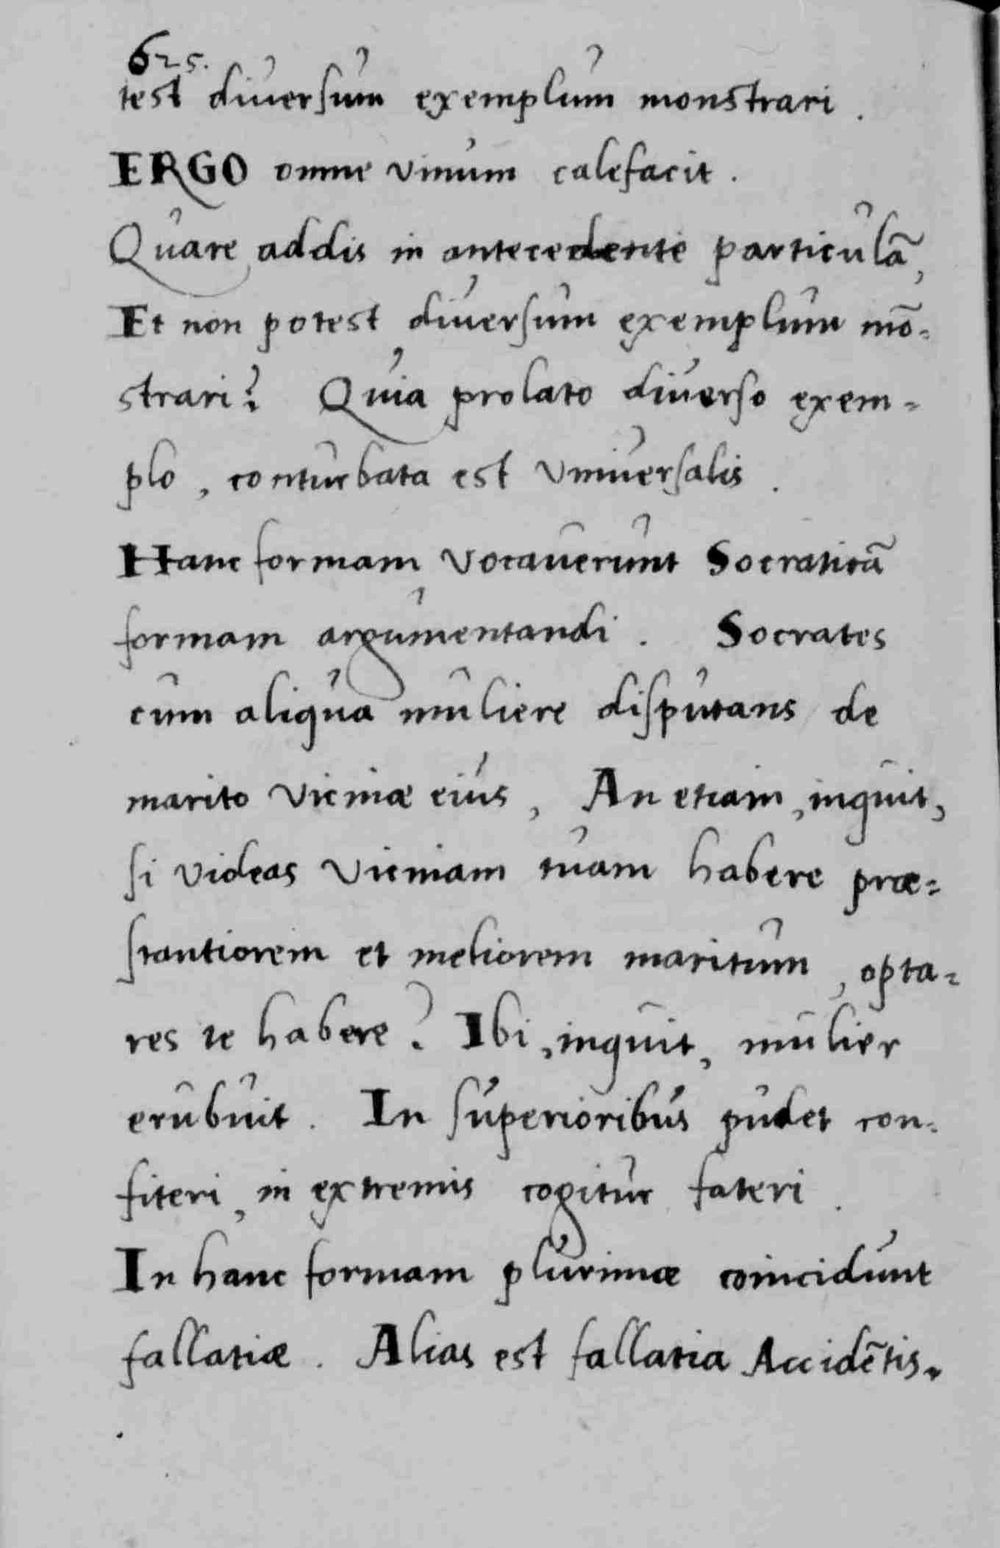 625.
test diversum exemplum monstrari.
ERGO omne vinum calefacit.
Quare addis in antecedente particulã,
Et non potest diversum exemplum mõ=
strari? Quia prolato diverso exem=
plo, conturbata est universalis.
Hanc formam vocaverunt Socraticã
formam argumentandi. Socrates
cum aliqua muliere disputans de
marito vicinæ eius, An etiam, inquit,
si videas vicinam tuam habere præ=
stantiorem et meliorem maritum, opta=
res te habere? Ibi, inquit, mulier
erubuit. In superioribus pudet con=
fiteri, in extremis cogitur fateri.
In hanc formam plurimæ coincidunt
fallatiæ. Alias est fallatia Accidẽtis.